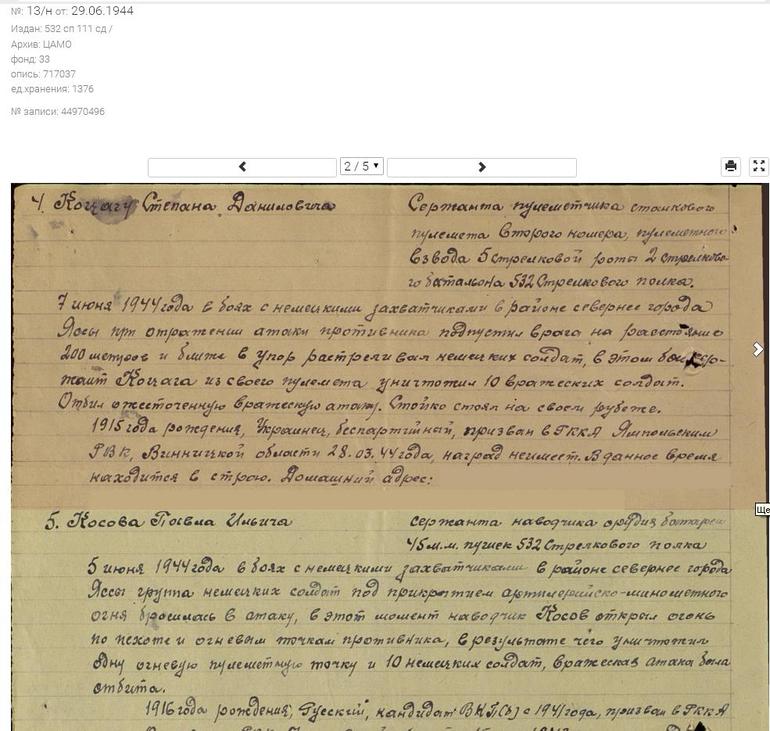 №: 13/н от: 29.06.1944
Издан: 532 сп 111 сд /
Архив: ЦАМО
фонд: 33
опись: 717037
ед.хранения: 1376
№ записи: 44970496
2 / 5
4. Коцагу Степана Даниловича
Сержанта пулеметчика станкового
пулемета второго номера, пулеметного
взвода 5 стрелковой роты 2 стрелково
го батальона 532 Стрелкового полка.
7 июня 1944 года в боях с немецкими захватчиками в районе севернее города
Яссы при отражении атаки противника подпустил врага на расстояние
200 метров и ближе в упор расстреливал немецких солдат, в этом бою сер-
жант Коцага из своего пулемета уничтожил 10 вражеских солдат.
Отбил ожесточенную вражескую атаку. Стойко стоял на своем рубеже.
1915 года рождения, Украинец, беспартийный, призван в РККА Ямпольским
РВК, Винницкой области 28.03.44 года, наград неимеет. В данное время
находится в строю. Домашний адрес:
Ще
5. Косова Павла Ильича
сержанта наводчика орудия батареи
45 м.м. пушек 532 Стрелкового полка
5 июня 1944 года в боях с немецкими захватчиками в районе севернее города
Яссы группа немецких солдат под прикрытием артиллерийско-минометного
огня бросилась в атаку, в этот момент наводчик Косов открыл огонь
по пехоте и огневым точкам противника, в результате чего уничтожил
одну огневую пулеметную точку и 10 немецких солдат, вражеская атака была
отбита.
1916 года рождения, Русский, кандидат ВКП(б) с 1941 года, призван в РККА